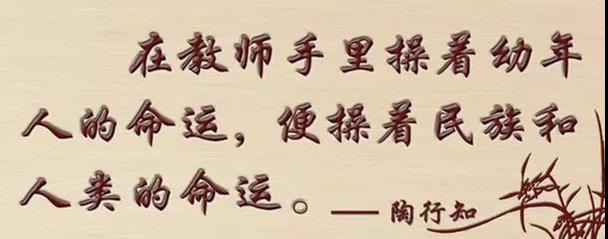 在教师手里操着幼年
人的命运，便操着民族和
人类的命运。——陶行知